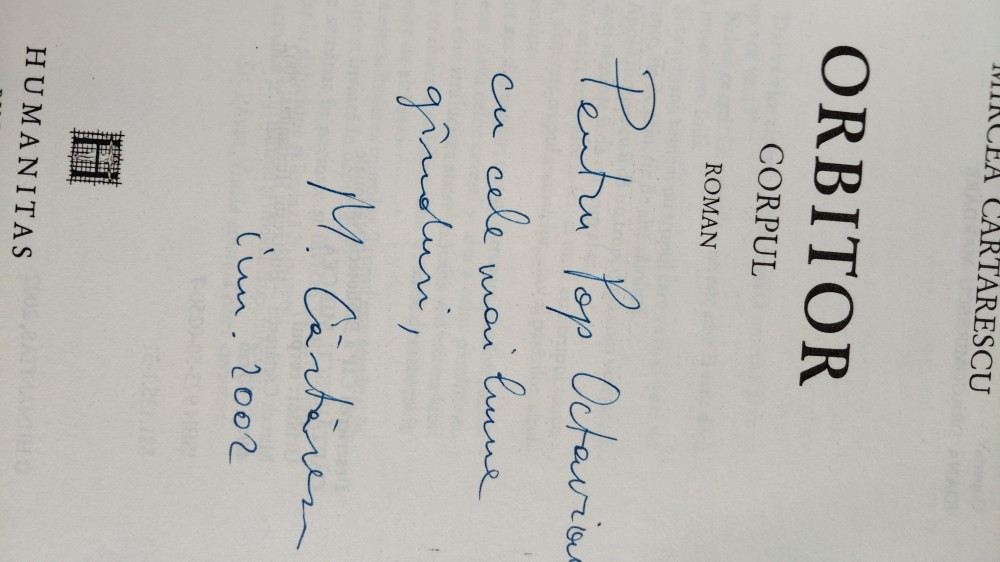 MIRCEA CĂRTĂRESCU
ORBITOR
CORPUL
ROMAN
Pentru Pop Octavian
cu cele mai bune
gânduri,
M. Cărtărescu
iun. 2002
H
HUMANITAS